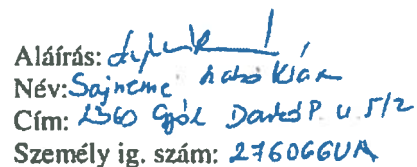 Aláírás:
Név: Sajneme Szabó Klára
Cím: 2360 Gyál Dankó P. u 5/2
Személy ig. szám: 276066UA